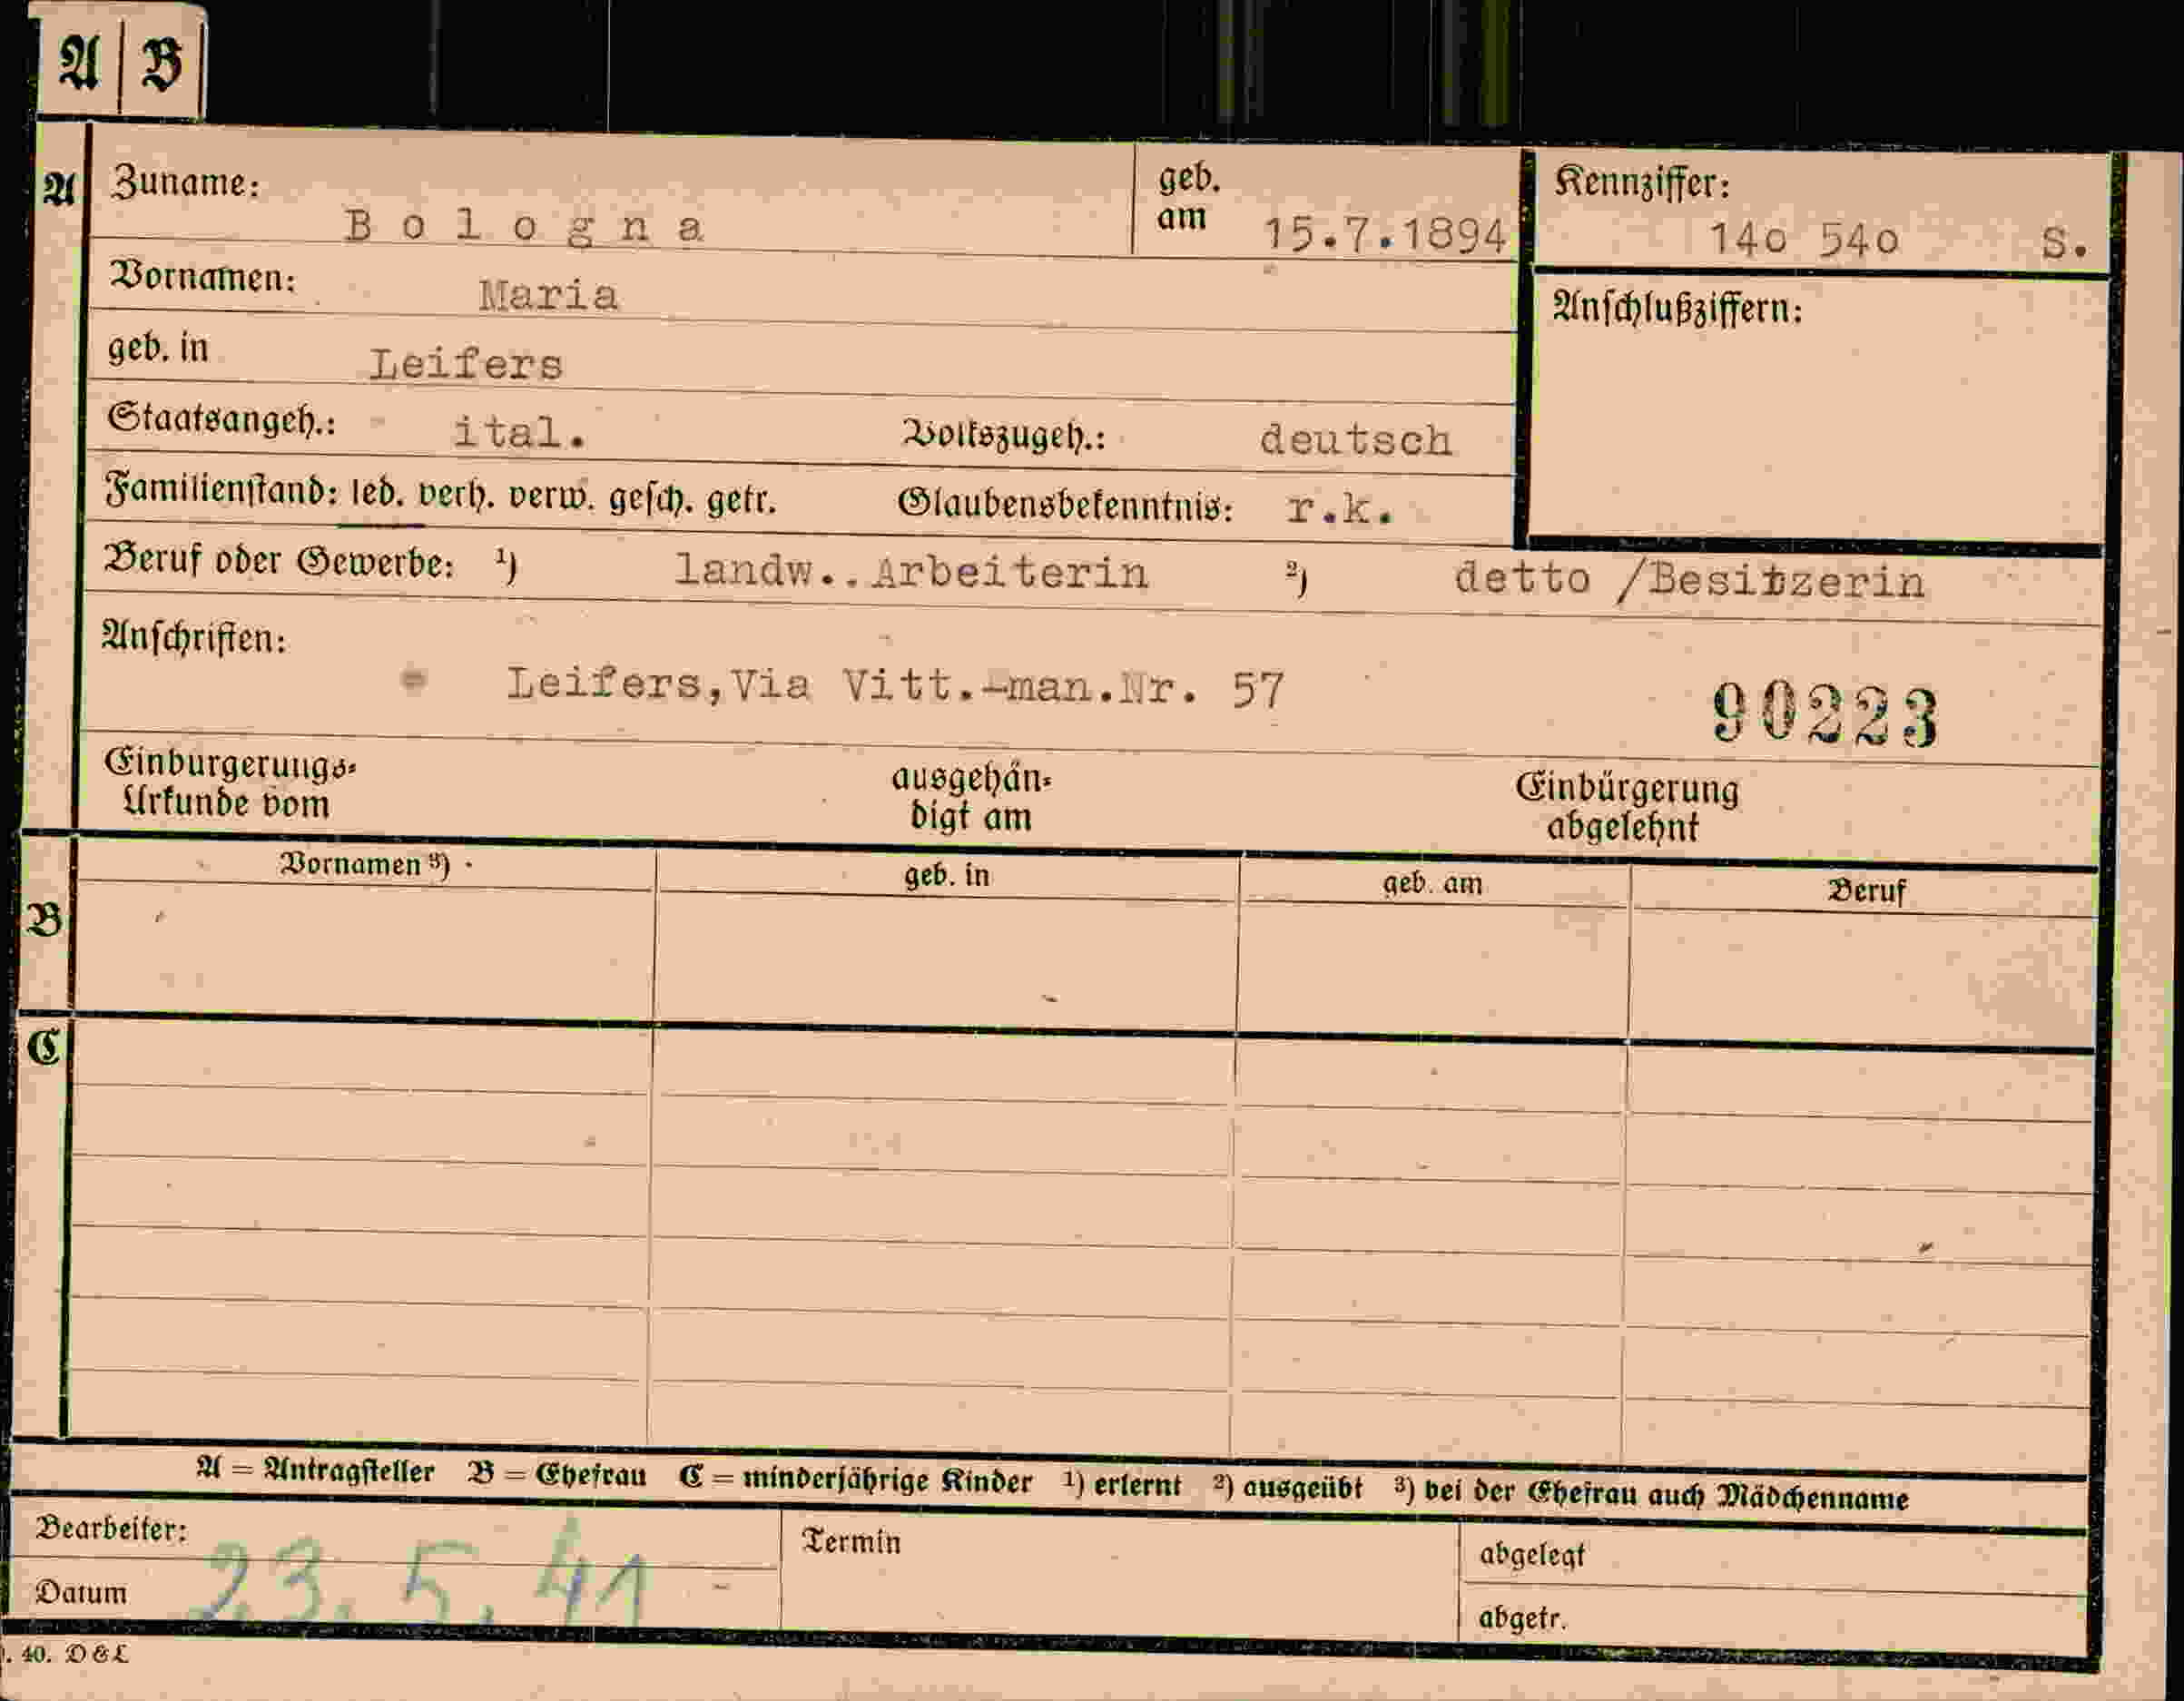 A | B
A Zuname: Bologna geb. am 15.7.1894 Kennziffer: 14o 54o S.
Vornamen: Maria Anschlußziffern:
geb. in Leifers
Staatsangeh.: ital. Volkszugeh.: deutsch
Familienstand: led. verh. verw. gesch. getr. Glaubensbekenntnis: r.k.
Beruf oder Gewerbe: ¹) landw..Arbeiterin ²) detto /Besitzerin
Anschriften:
Leifers,Via Vitt.-man.Nr. 57 90223
Einbürgerungs= ausgehän= Einbürgerung
Urkunde vom digt am abgelehnt
B Vornamen ³) geb. in geb. am Beruf
C
A = Antragsteller B = Ehefrau C = minderjährige Kinder ¹) erlernt ²) ausgeübt ³) bei der Ehefrau auch Mädchenname
Bearbeiter: Termin abgelegt
Datum 23.5.41 abgetr.
. 40. D & L